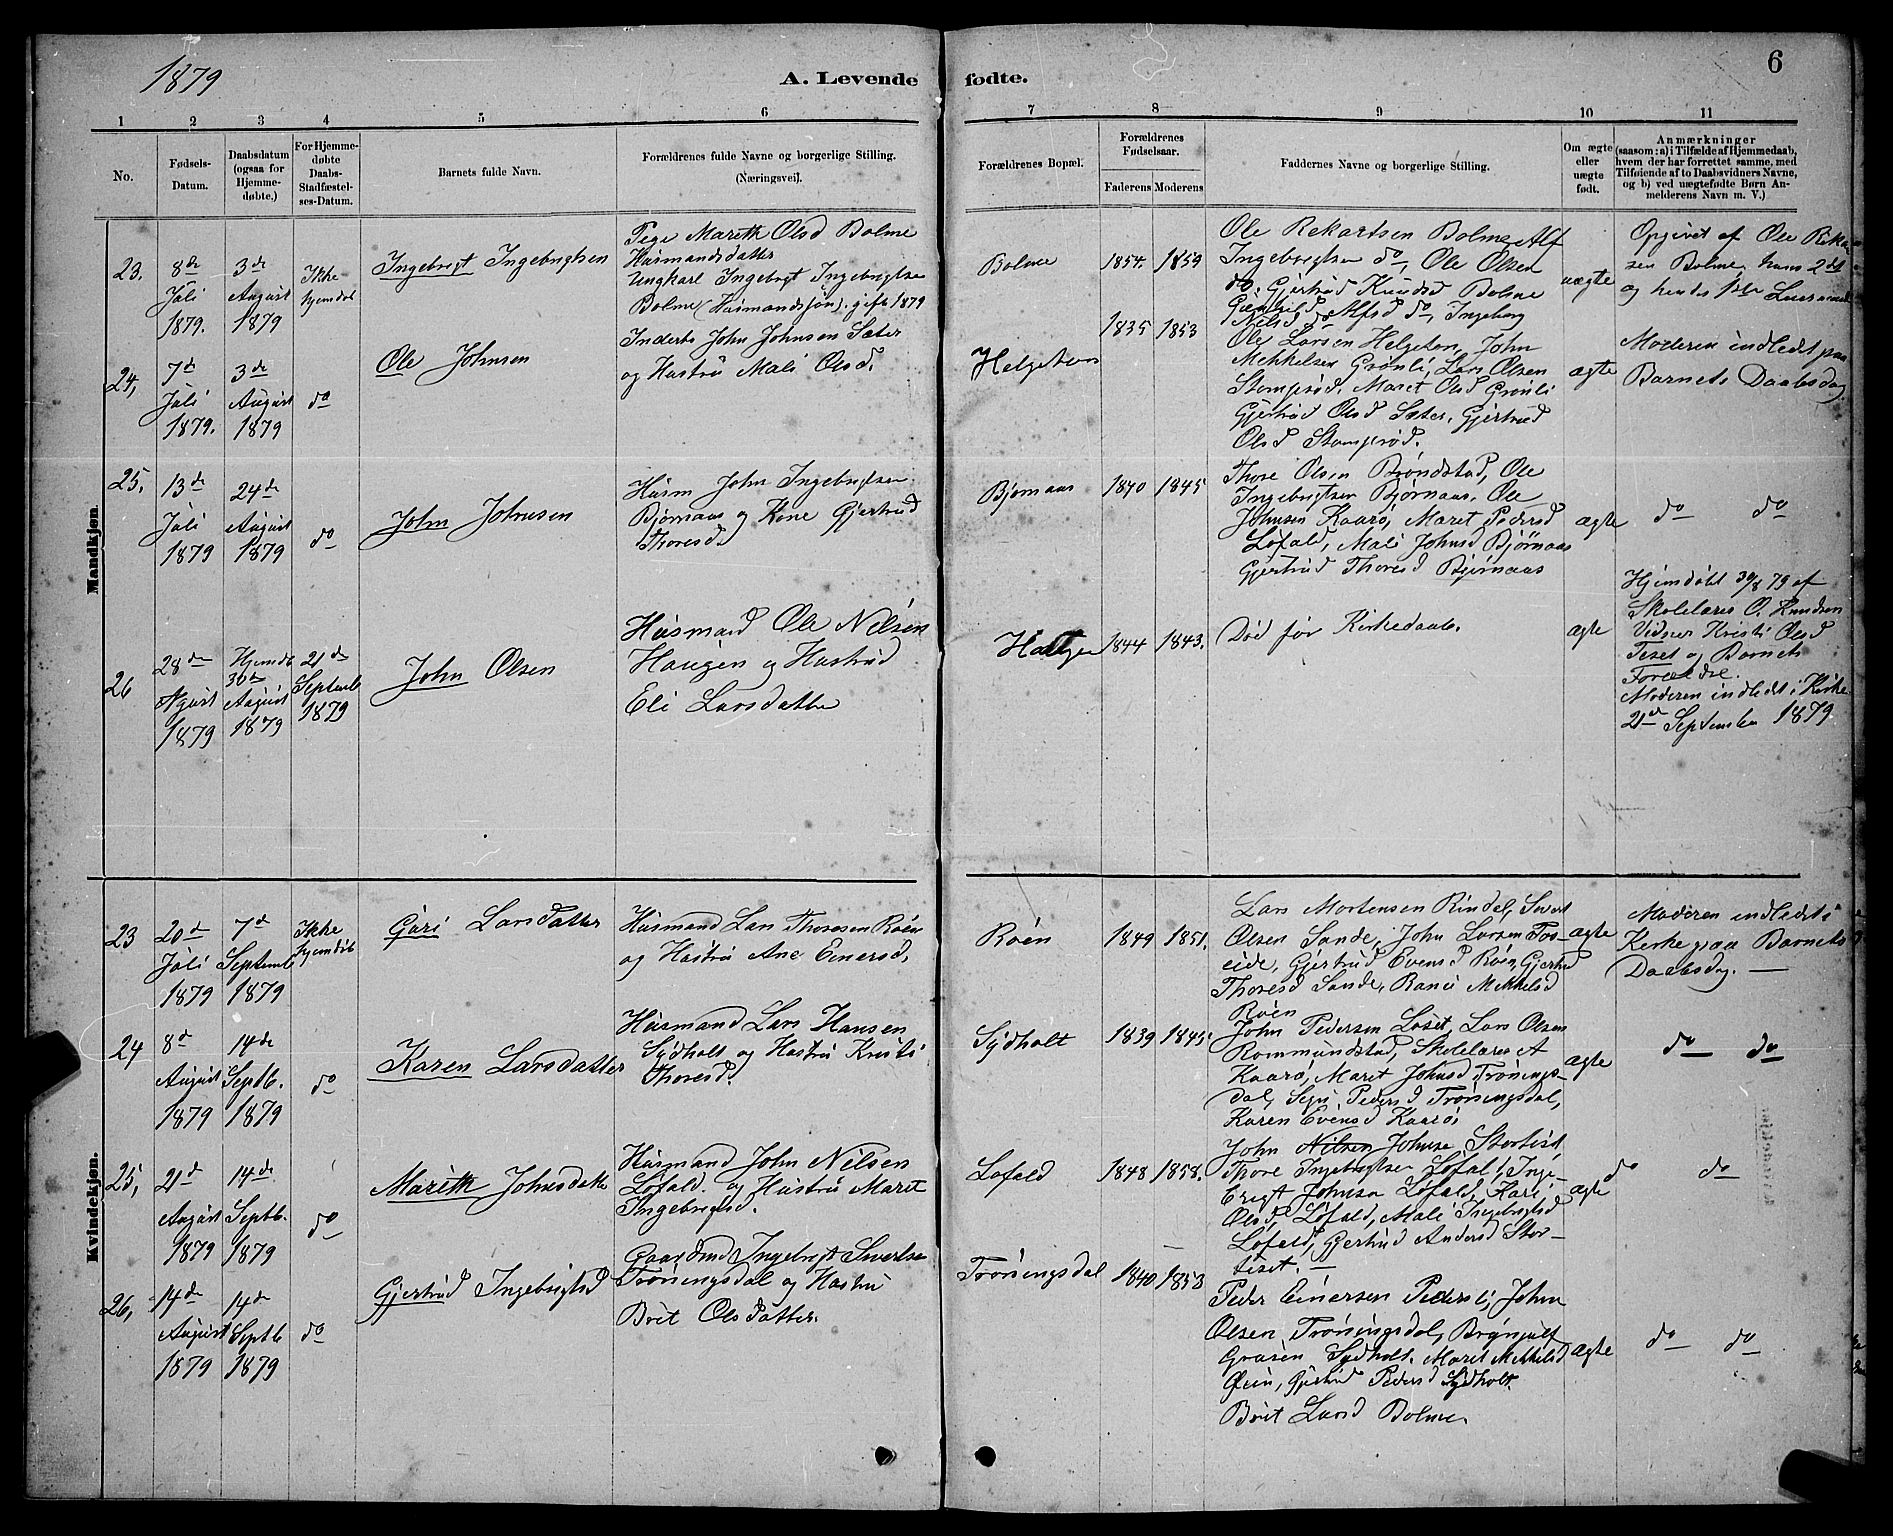 1879
A. Levende fødte.
6
1 2 3 4 5 6 7 8 9 10 11
No.
Fødsels-
Datum.
Daabsdatum
(ogsaa for
Hjemme-
døbte.)
For Hjemme-
døbte
Daabs-
Stadfæstel-
ses-Datum.
Barnets fulde Navn.
Forældrenes fulde Navne og borgerlige Stilling.
(Næringsvei).
Forældrenes Bopæl.
Forældrenes
Fødselsaar.
Faderens Moderens
Faddernes Navne og borgerlige Stilling.
Om ægte
eller
uægte
født.
Anmærkninger
(saasom: a) i Tilfælde af Hjemmedaab,
hvem der har forrettet samme, med
Tilføiende af to Daabsvidners Navne,
og b) ved uægtefødte Børn An-
melderens Navn m. V.)
Mandkjøn.
23.
8de
Juli
1879.
3de
August
1879
Ikke
hjemdøb
Ingebrigt Ingebrigtsen
Pige Marith Olsd Bolme
Husmandsdatter
Ungkarl Ingebrigt Ingebrigtsen
Bolme (Husmandssøn). gift 1879
Bolme
1854. 1859
Ole Rekartsen Bolme, Alf
Ingebrigtsen do, Ole Olsen
do, Gjertrud Knudsd Bolme
Gunhild Alfsd do, Ingeborg
Nilsd do
uægte
Opgivet af Ole Rekart
sen Bolme, hans 2det
og hendes 1ste
24,
7de
Juli
1879.
3de
August
1879
do
Ole Johnsen
Inderst John Johnsen Sæter
og Hustru Mali Olsd.
Helgetun
1835 1853
Ole Larsen Helgeton, John
Mekkelsen Grønli, Lars Olsen
Stomprød, Maret Olsd Grønli
Gjertrud Olsd Sæter, Gjertrud
Olsd Stomprød.
ægte
Moderen indledet paa
Barnets Daabsdag
25,
13de
Juli
1879
24de
August
1879
do
John Johnsen
Husm John Ingebrigtsen
Bjørnaas og Kone Gjertrud
Thoresd
Bjørnaas
1840 1845
Thore Olsen Brøndstad, Ole
Ingebrigtsen Bjørnaas, Ole
Johnsen Kaarø, Maret Pedersd
Løfald, Mali Johnsd Bjørnaas
Gjertrud Thoresd Bjørnaas
ægte
do do
26
28de
August
1879
Hjemdb
30te
August
1879
21de
Septemb
1879
John Olsen
Husmand Ole Nilsen
Haugen og Hustru
Eli Larsdatter
Haugen
1844 1843.
Død før Kirkedaab.
ægte
Hjemdøbt 30/8 79 af
Skolelærer O. Knudsen
Vidner Kristi Olsd
og Barnets
Forældre.
Moderen indledet i Kirke
21de September 1879
Kvindekjøn.
23
20de
Juli
1879
7de
Septemb
1879
Ikke
hjemdøb
Guri Larsdatter
Husmand Lars Thoresen Røen
og Hustru Ane Einersd,
Røen
1849 1851.
Lars Mortensen Rindal, Sivert
Olsen Sande, John Larsen Fos-
eide, Gjertrud Evensd Røen, Gjertrud
Thoresd Sande, Rani Mekkelsd
Røen
ægte
Moderen indledet i
Kirke paa Barnets
Daabsdag. —
24
8de
August
1879
14de
Septb.
1879
do
Karen Larsdatter
Husmand Lars Hansen
Sydholt og Hustru Kristi
Thoresd.
Sydholt
1839 1845.
John Pedersen Løset, Lars Olsen
Rommundstad, Skolelærer A
Kaarø, Maret Johnsd Trønings-
dal, Sigri Pedersd Trøningsdal,
Karen Evensd Kaarø
ægte
do do
25,
21de
August
1879
14de
Septb.
1879
do
Marith Johnsdatter
Husmand John Nilsen
Løfald. og Hustru Maret
Ingebrigtsd.
Løfald
1848 1858.
John Nilsen Johnsen Storliset
Thore Ingebrigtsen Løfald, Inge-
brigt Johnsen Løfald, Kari
Olsd Løfald, Mali Ingebrigtsd
Løfald, Gjertrud Andersd Stor-
liset. —
ægte
do do
26,
14de
August
1879
14de
Septb
1879
do
Gjertrud Ingebrigtsd
Gaardmd Ingebrigt Sivertsen
Trøningsdal og Hustru
Brit Olsdatter.
Trøningsdal
1840 1853
Peder Einersen Pedersli, John
Olsen Trøningsdal, Brynjulf
Sydholt. Maret Mekkelsd
Øien, Gjertrud Pedersd Sydholt.
Brit Larsd Bolme.
ægte
do do